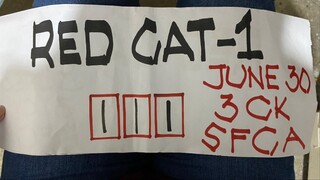 RED CAT-1
JUNE 30
3 CK
SFCA
111